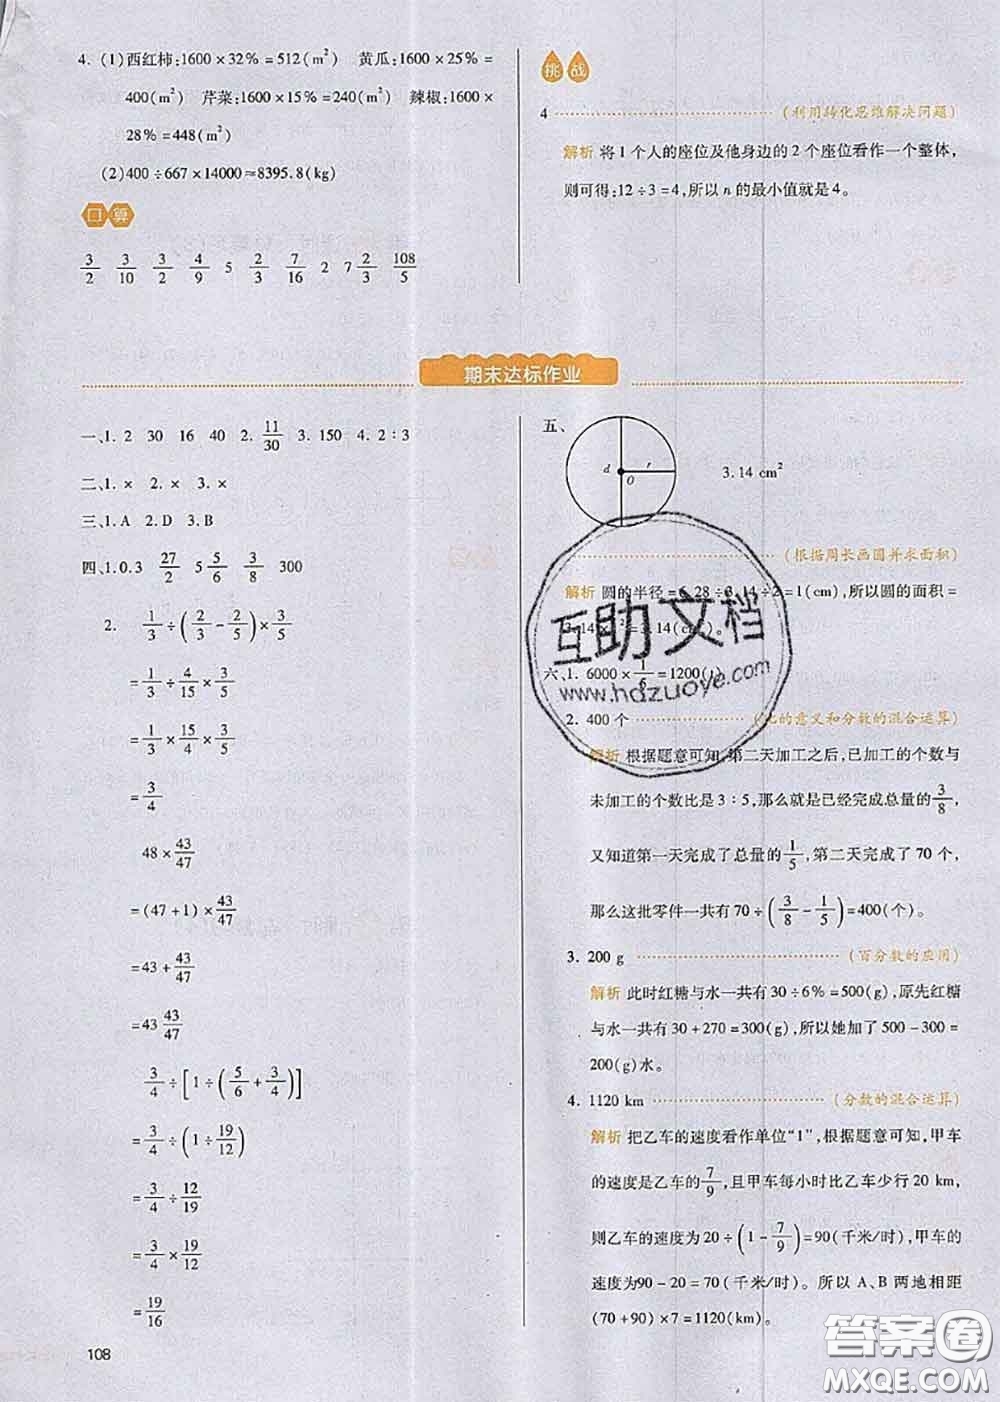 4. (1)西红柿:1600×32%=512(m²) 黄瓜:1600×25%=
400(m²) 芹菜:1600×15%=240(m²) 辣椒:1600×
28%=448(m²)
(2)400÷667×14000≈8395.8(kg)
口算
3/2 3/10 3/2 4/9 5 2/3 7/16 2 7 2/3 108/5
挑战
4 (利用转化思维解决问题)
解析 将1个人的座位及他身边的2个座位看作一个整体,
则可得:12÷3=4,所以n的最小值就是4。
期末达标作业
一、1. 2 30 16 40 2. 11/30 3. 150 4. 2:3
二、1. × 2. × 3. ×
三、1. A 2. D 3. B
四、1. 0.3 27/2 5 5/6 3/8 300
2. 1/3÷(2/3-2/5)×3/5
=1/3÷4/15×3/5
=1/3×15/4×3/5
=3/4
48×43/47
=(47+1)×43/47
=43+43/47
=43 43/47
3/4÷[1÷(5/6+3/4)]
=3/4÷(1÷19/12)
=3/4÷12/19
=3/4×19/12
=19/16
108
五、
d r O 3.14 cm²
(根据周长画圆并求面积)
解析 圆的半径=6.28÷3.14÷2=1(cm),所以圆的面积=
3.14×1²=3.14(cm²)。
六、1. 6000×1/6=1200(t)
2. 400个 (比的意义和分数的混合运算)
解析 根据题意可知,第二天加工之后,已加工的个数与
未加工的个数比是3:5,那么就是已经完成总量的3/8,
又知道第一天完成了总量的1/5,第二天完成了70个,
那么这批零件一共有70÷(3/8-1/5)=400(个)。
3. 200 g (百分数的应用)
解析 此时红糖与水一共有30÷6%=500(g),原先红糖
与水一共有30+270=300(g),所以她加了500-300=
200(g)水。
4. 1120 km (分数的混合运算)
解析 把乙车的速度看作单位“1”,根据题意可知,甲车
的速度是乙车的7/9,且甲车每小时比乙车少行20 km,
则乙车的速度为20÷(1-7/9)=90(千米/时),甲车的
速度为90-20=70(千米/时)。所以A、B两地相距
(70+90)×7=1120(km)。
互助文档
www.hdzuoye.com
答案圈
MXQE.COM